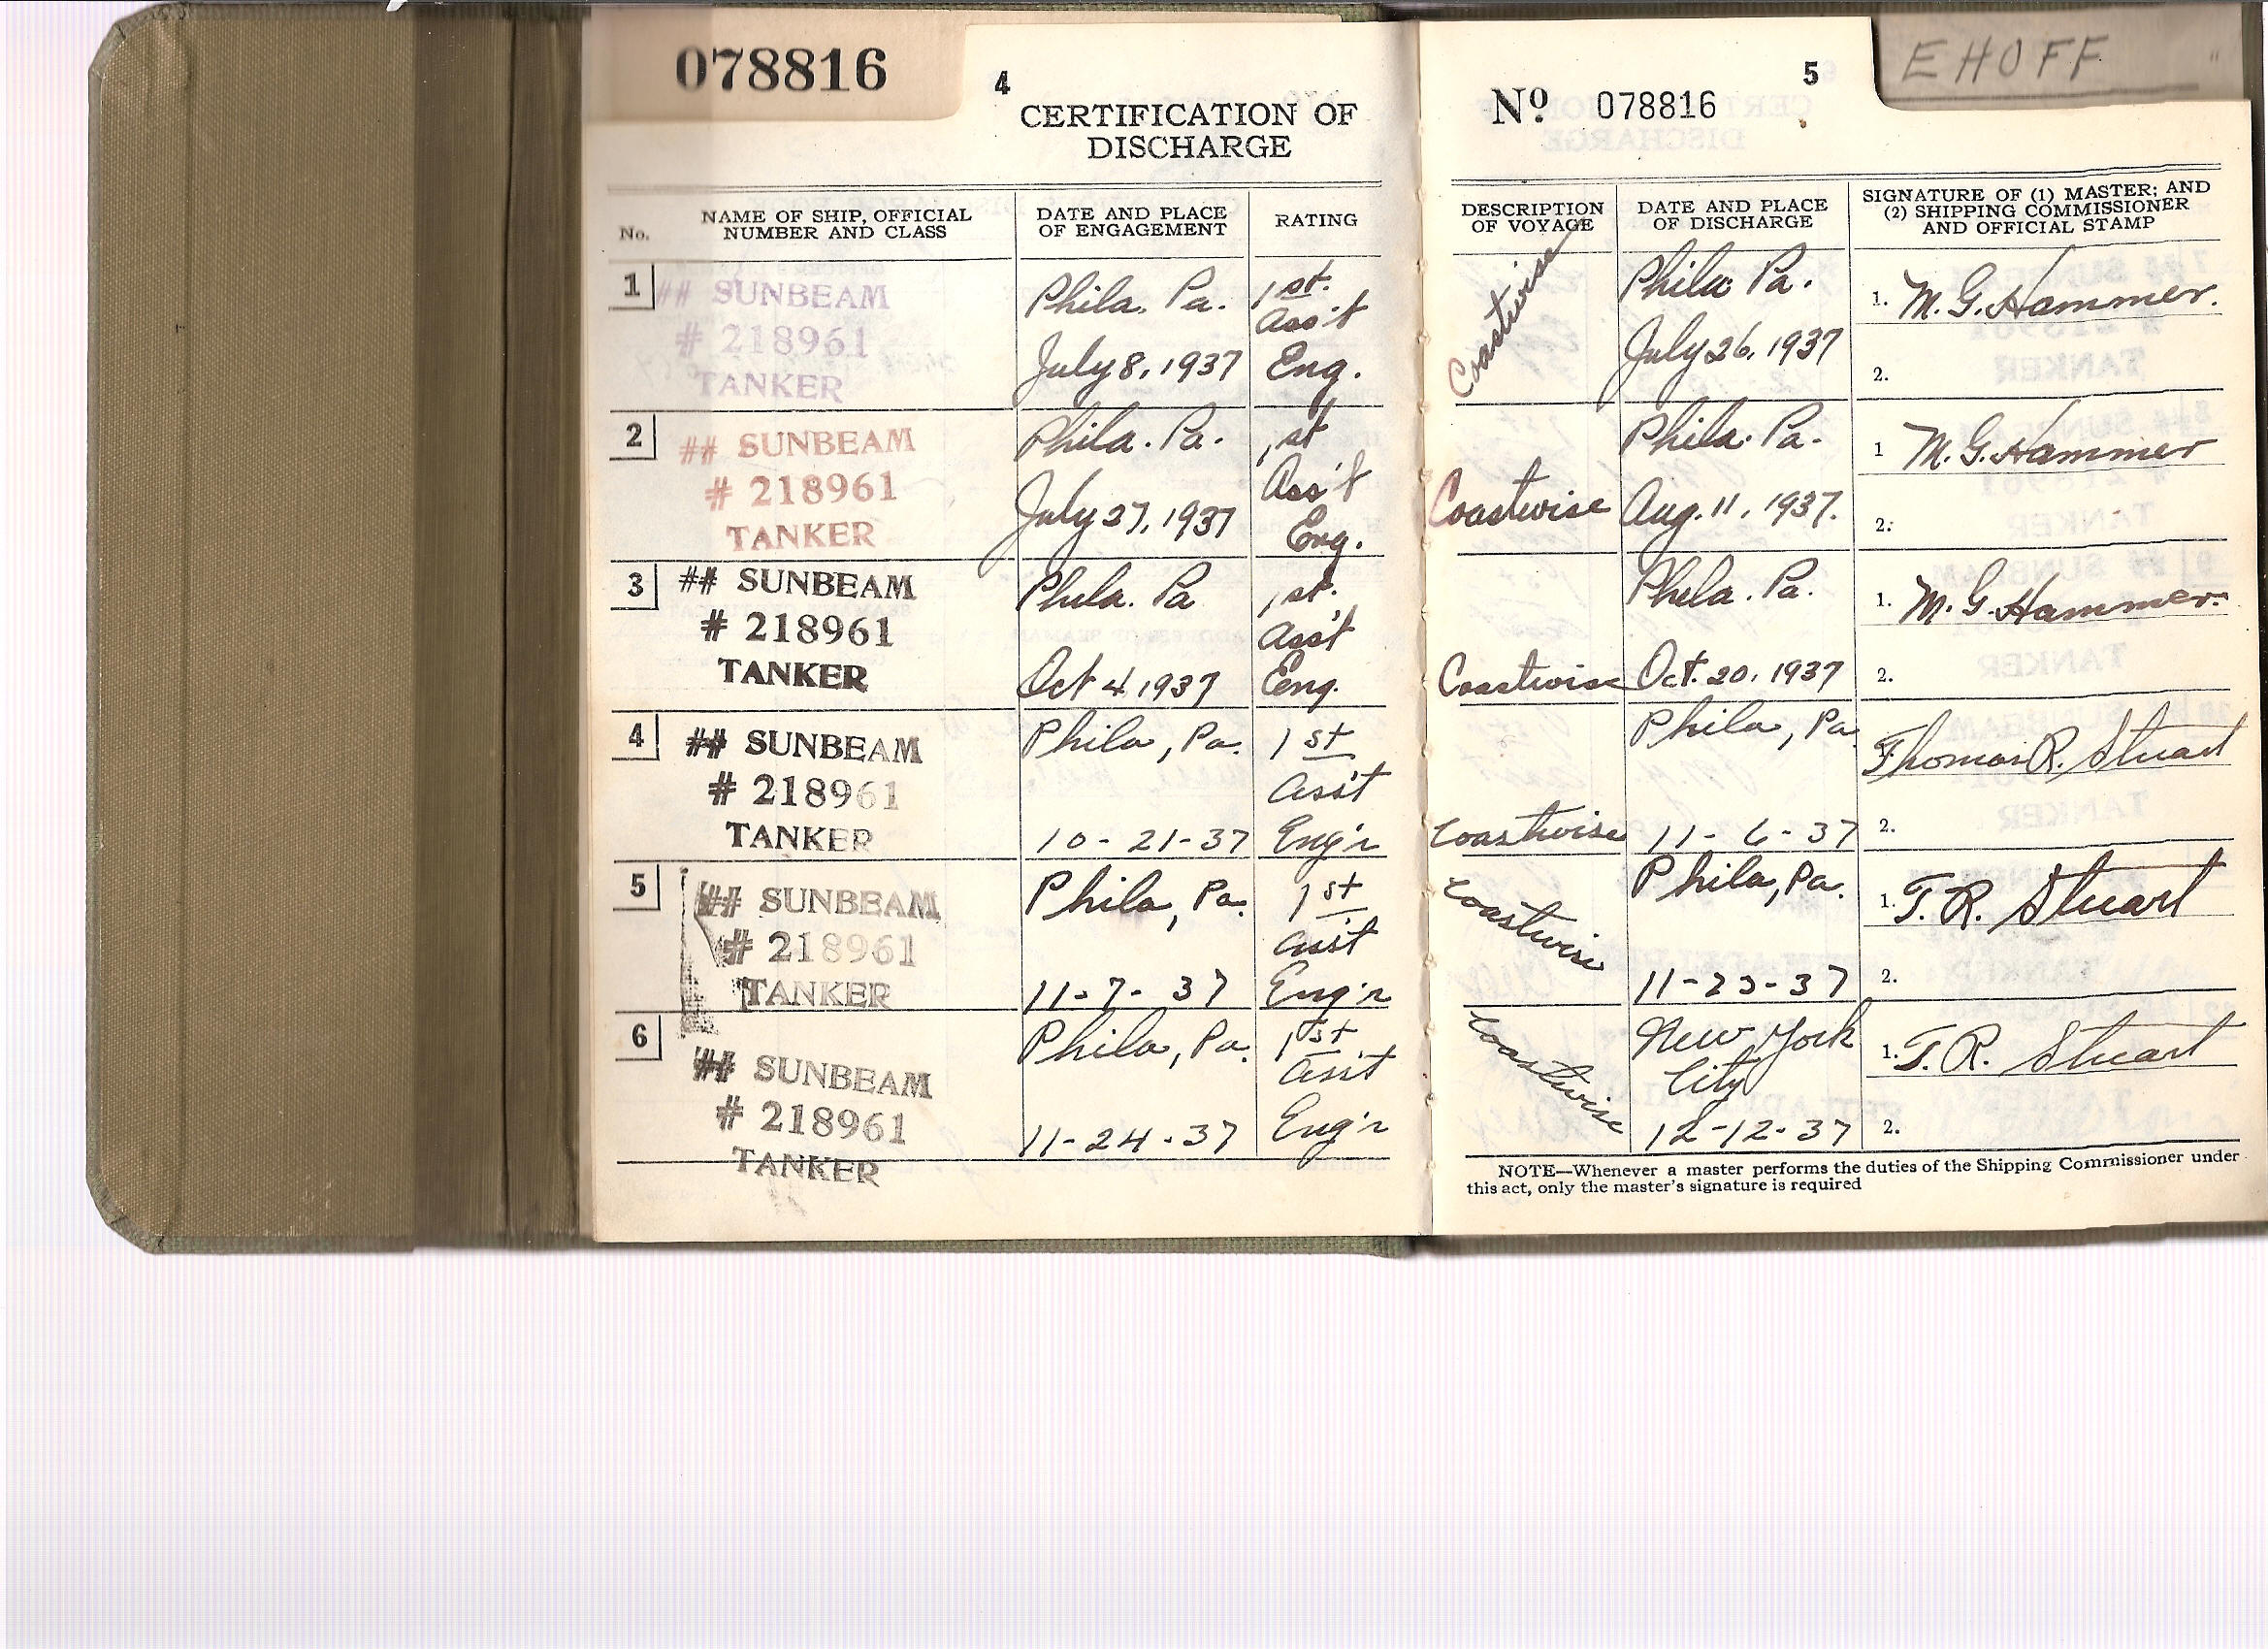 078816
4
CERTIFICATION OF
DISCHARGE
No.
NAME OF SHIP, OFFICIAL
NUMBER AND CLASS
DATE AND PLACE
OF ENGAGEMENT
RATING
1
## SUNBEAM
# 218961
TANKER
Phila. Pa.
July 8, 1937
1st.
Ass't
Eng.
2
## SUNBEAM
# 218961
TANKER
Phila. Pa.
July 27, 1937
1st
Ass't
Eng.
3
## SUNBEAM
# 218961
TANKER
Phila. Pa
Oct 4, 1937
1st.
Ass't
Eng.
4
## SUNBEAM
# 218961
TANKER
Phila, Pa.
10-21-37
1st
Ass't
Eng'r
5
## SUNBEAM
# 218961
TANKER
Phila, Pa.
11-7-37
1st
Ass't
Eng'r
6
## SUNBEAM
# 218961
TANKER
Phila, Pa.
11-24-37
1st
Ass't
Eng'r
5
EHOFF
No. 078816
DESCRIPTION
OF VOYAGE
DATE AND PLACE
OF DISCHARGE
SIGNATURE OF (1) MASTER; AND
(2) SHIPPING COMMISSIONER
AND OFFICIAL STAMP
Coastwise
Phila. Pa.
July 26, 1937
1. M. G. Hammer.
2.
Coastwise
Phila. Pa.
Aug. 11, 1937.
1 M. G. Hammer
2.
Coastwise
Phila. Pa.
Oct. 20, 1937
1. M. G. Hammer.
2.
Coastwise
Phila, Pa
11-6-37
1. Thomas R. Stuart
2.
Coastwise
Phila, Pa.
11-23-37
1. T. R. Stuart
2.
Coastwise
New York
City
12-12-37
1. T. R. Stuart
2.
NOTE—Whenever a master performs the duties of the Shipping Commissioner under
this act, only the master's signature is required